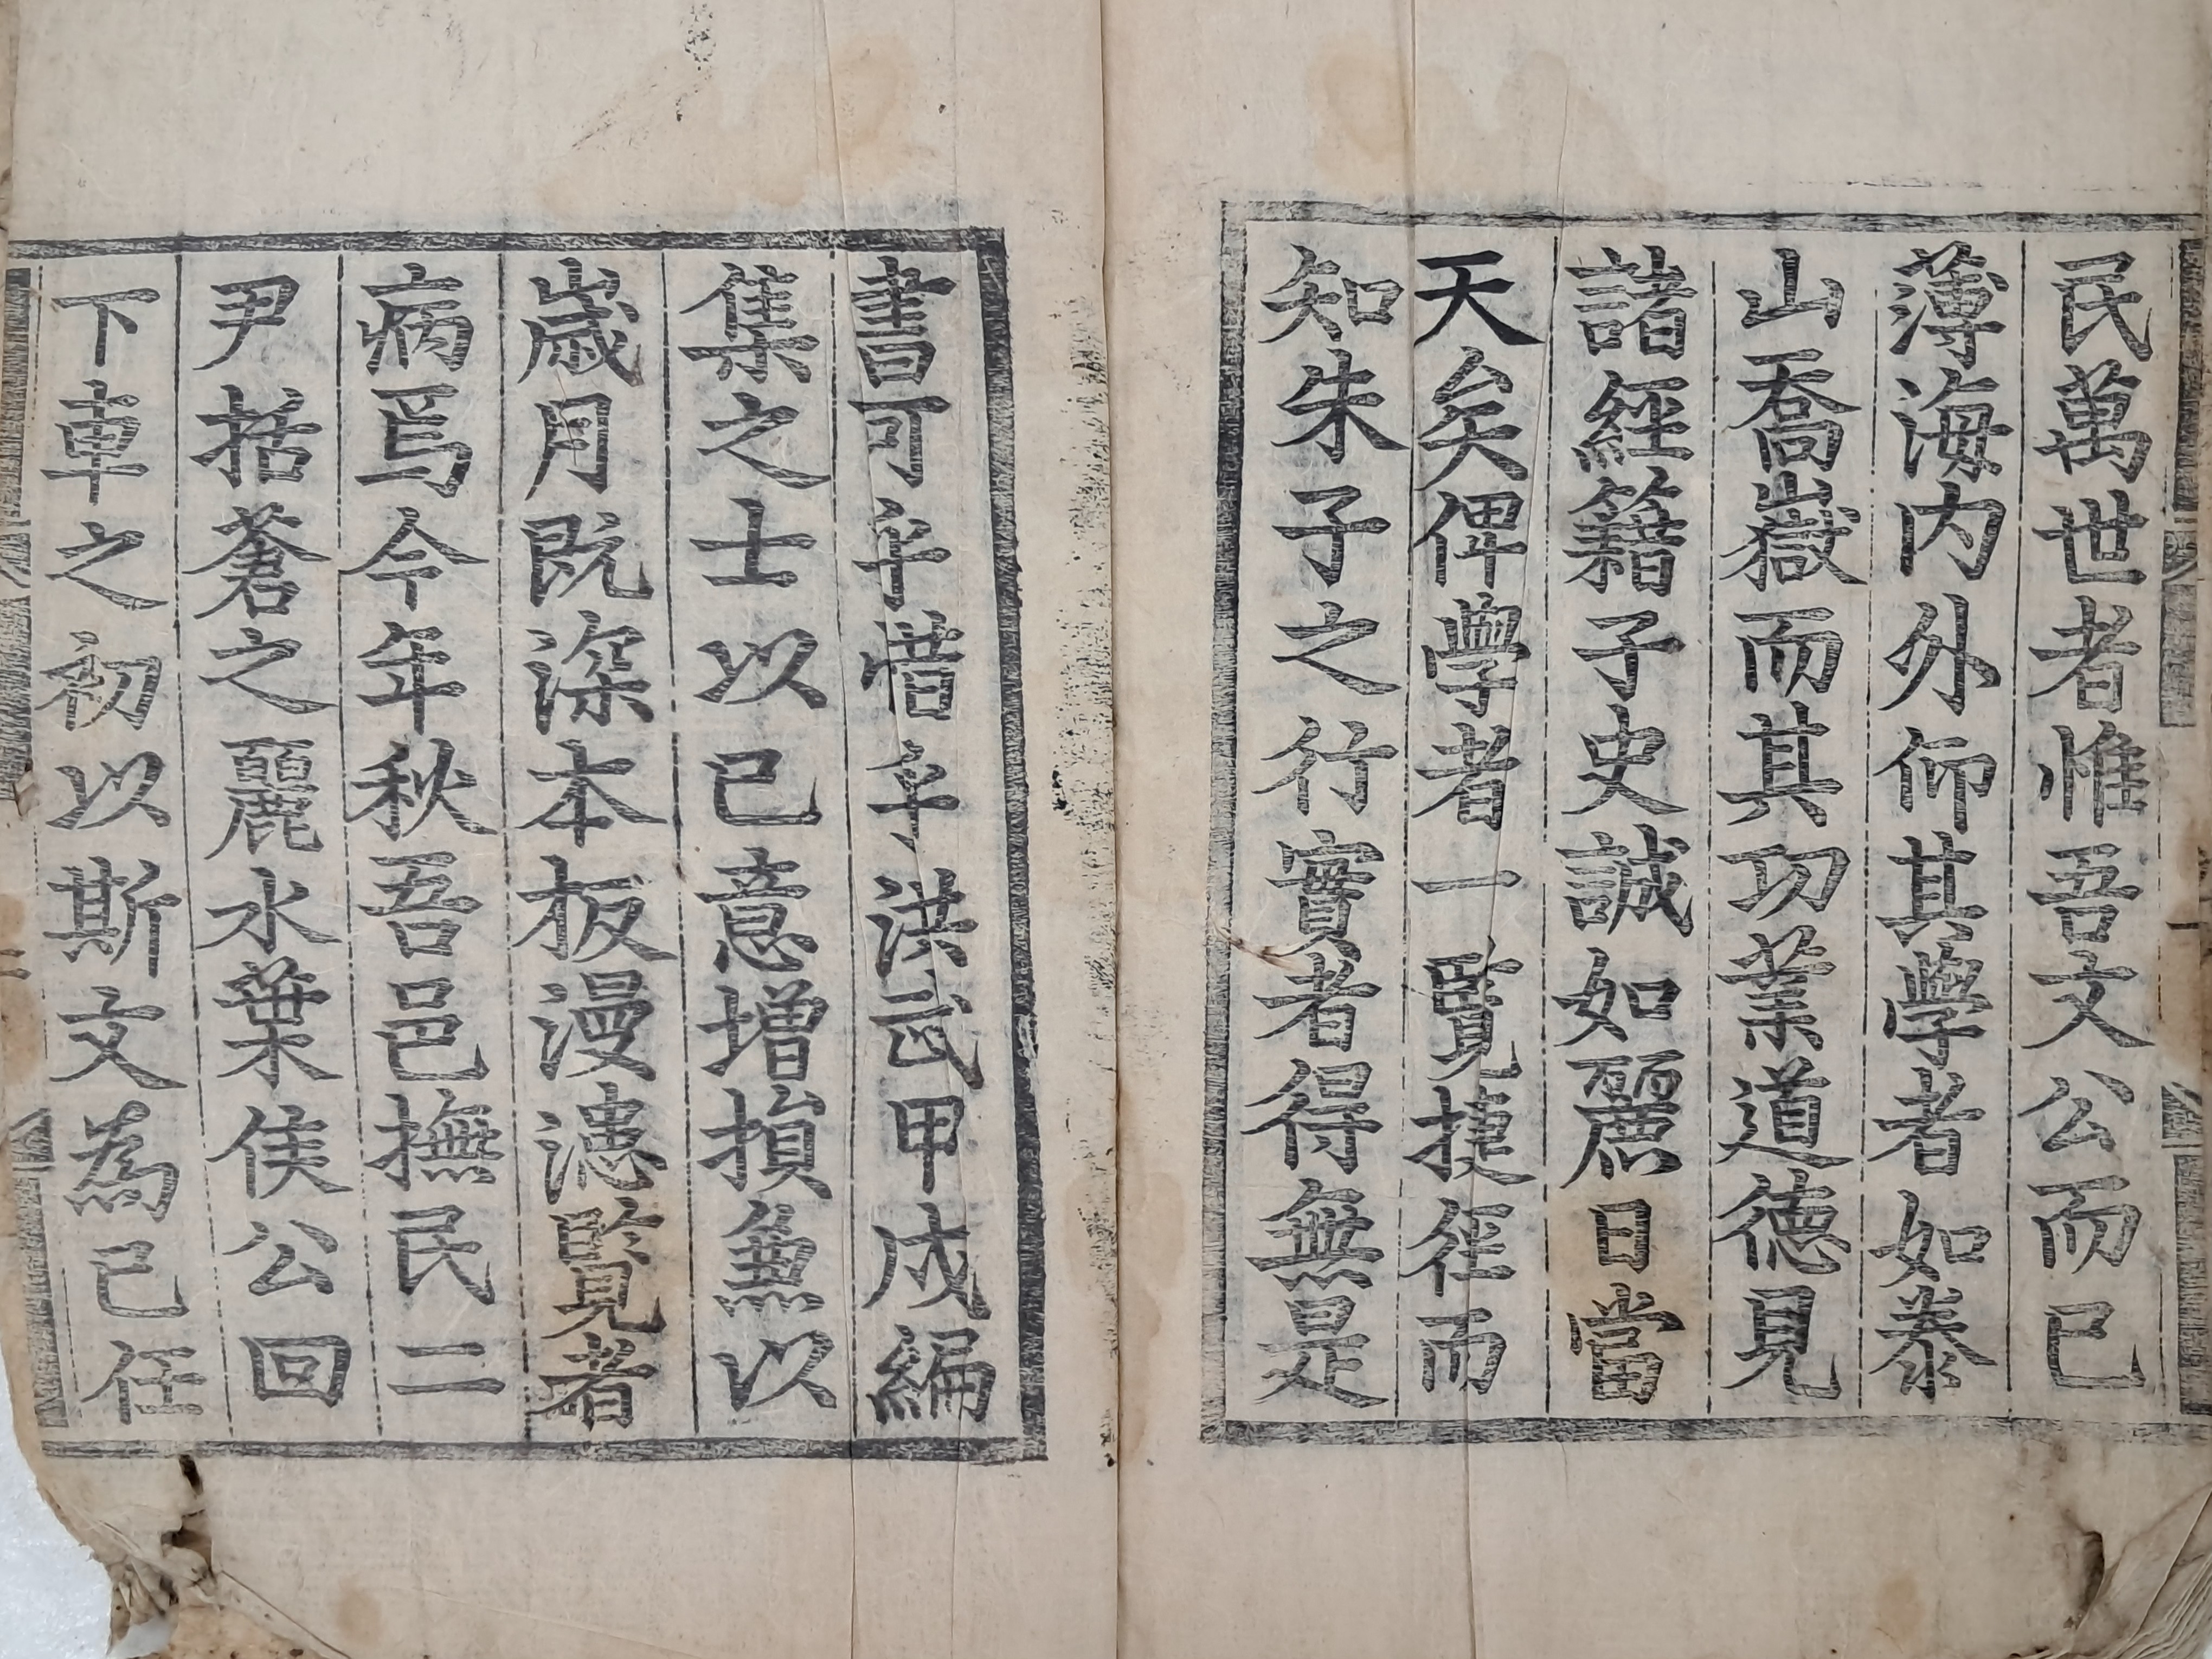 民萬世者惟吾文公而已
薄海内外仰其學者如泰
山喬嶽而其功業道德見
諸經籍子史誠如麗日當
天矣俾學者一覽捷徑而
知朱子之行實者得無是
書可乎惜乎洪武甲戌編
集之士以己意增損兼以
歲月既深本板漫漶覽者
病焉今年秋吾邑撫民二
尹括蒼之麗水葉侯公回
下車之初以斯文為己任